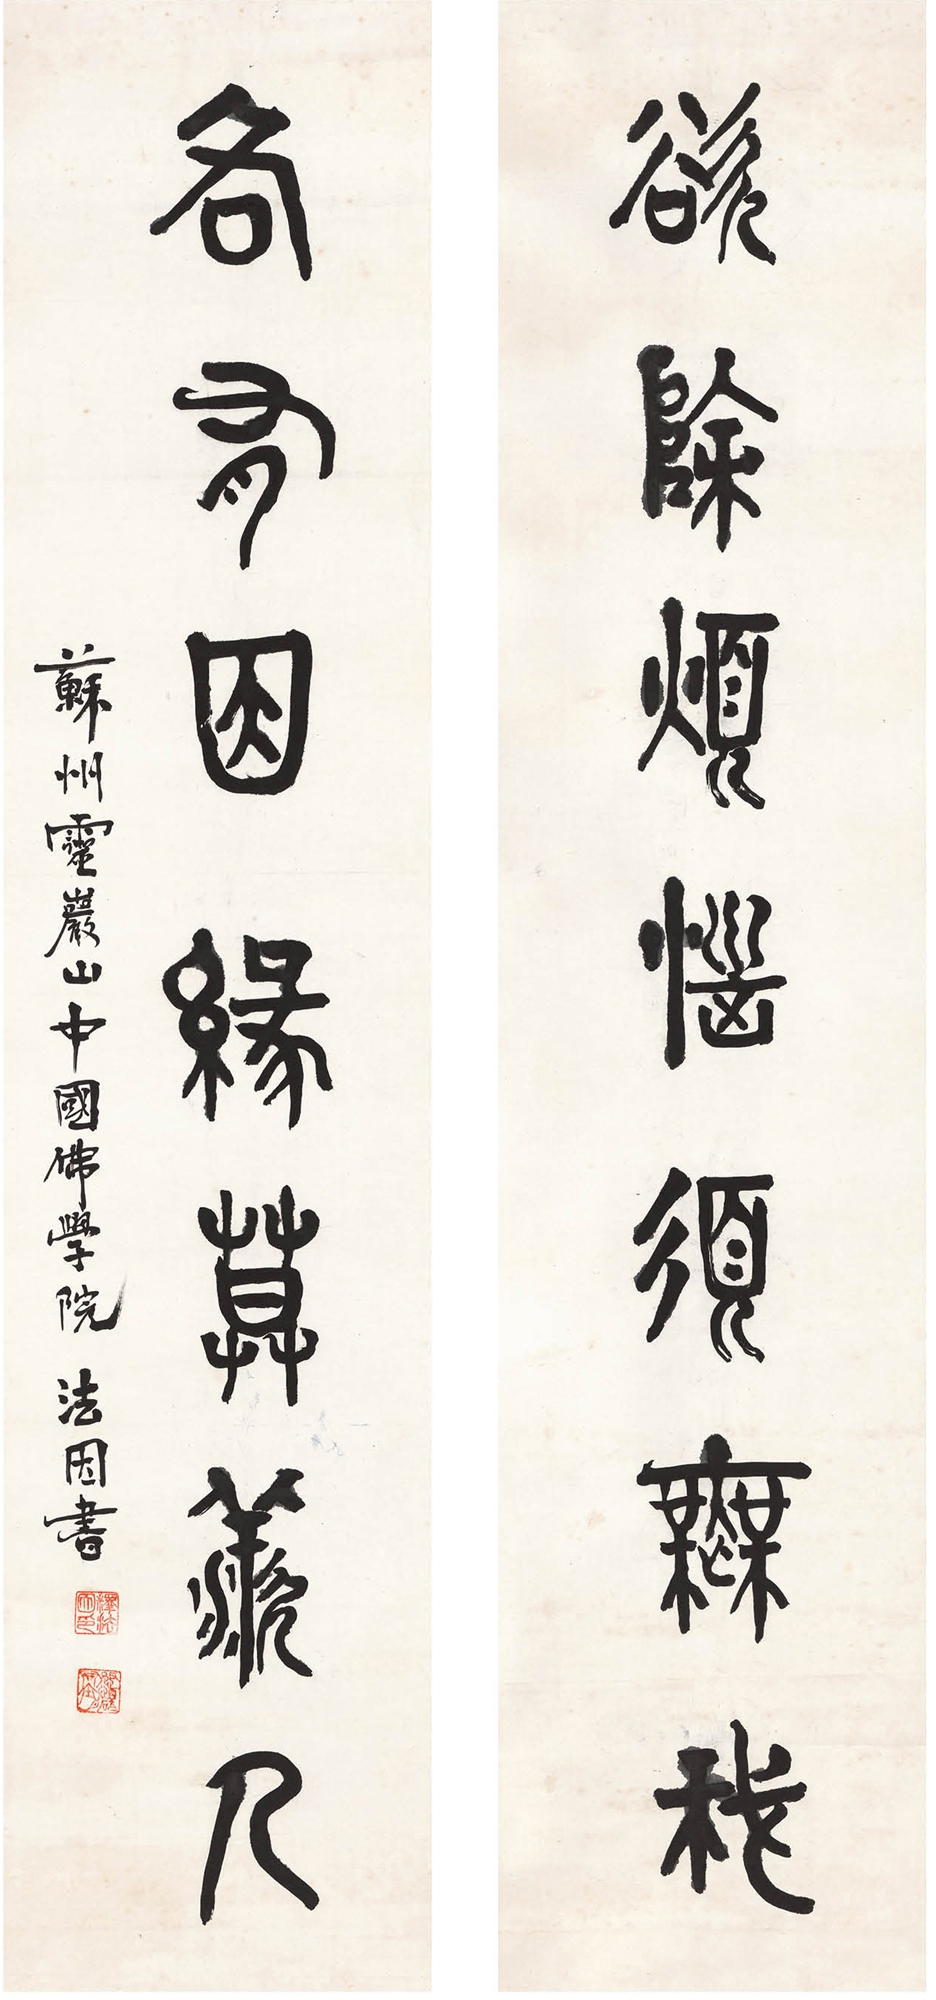 欲除煩惱須無我
各有因緣莫羨人
蘇州靈巖山中國佛學院 法因書